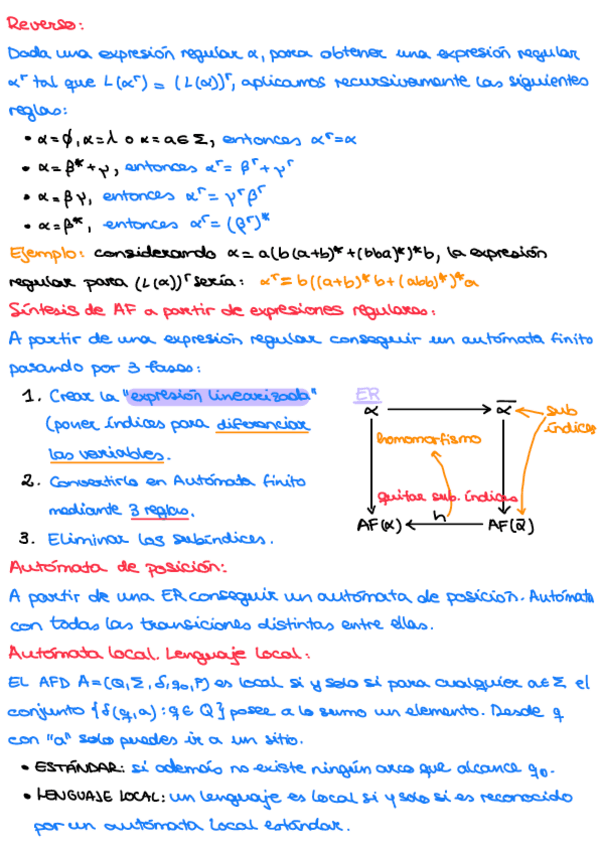 Reverso:
Dada una expresión regular α, para obtener una expresión regular
αʳ tal que L(αʳ) = (L(α))ʳ, aplicamos recursivamente las siguientes
reglas:
• α = ϕ, α = λ o α = a ∈ Σ, entonces αʳ = α
• α = β* + γ, entonces αʳ = βʳ + γʳ
• α = βγ, entonces αʳ = γʳβʳ
• α = β*, entonces αʳ = (βʳ)*
Ejemplo: considerando α = a(b(a+b)* + (bba)*)*b, la expresión
regular para (L(α))ʳ sería: αʳ = b((a+b)*b + (abb)*)*a
Síntesis de AF a partir de expresiones regulares:
A partir de una expresión regular conseguir un autómata finito
pasando por 3 fases:
1. Crear la "expresión linearizada"
(poner índices para diferenciar
las variables.
2. Convertirla en Autómata finito
mediante 3 reglas.
3. Eliminar los subíndices.
ER
α
α̅
sub
índices
homomorfismo
quitar sub. índices
AF(α)
h
AF(α̅)
Autómata de posición:
A partir de una ER conseguir un autómata de posición. Autómata
con todas las transiciones distintas entre ellas.
Autómata local. Lenguaje local:
EL AFD A = (Q, Σ, δ, q₀, F) es local si y solo si para cualquier a ∈ Σ el
conjunto {δ(q, a) : q ∈ Q} posee a lo sumo un elemento. Desde q
con "a" solo puedes ir a un sitio.
• ESTÁNDAR: si además no existe ningún arco que alcance q₀.
• LENGUAJE LOCAL: un lenguaje es local si y solo si es reconocido
por un autómata local estándar.